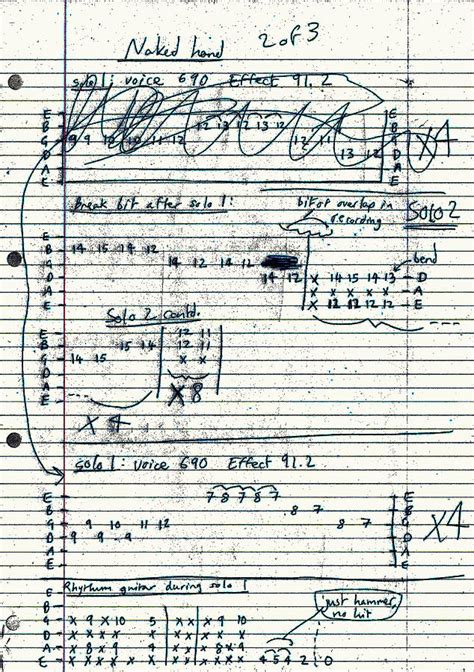 Naked hand 2 of 3
solo 1: voice 690 Effect 91.2
E
B
G 9 9 10 10 11 12 12 13 12 13 12 12 11 12 X4
D 13 12
A
E
Break bit after solo 1:
bit of overlap in recording
Solo 2
bend
E
B 14 15 14 12
G 14 12 14 12
D 14 12 X 14 15 14 13 D
A X X X X X A
E X 12 12 12 12 E
Solo 2 contd.
E 12 11
B 15 14 12 11
G 14 15 X X
D
A X 8
E
X 4
solo 1: voice 690 Effect 91.2
E 7 8 7 8 7
B 8 7
G 9 10 11 12 8 7 X4
D 9 9 9
A
E
Rhythum guitar during solo 1
just hammer, no hit
E
B
G X 9 X 10 5 X X X 9 10
D X X X X X X X X X
A X X X X X X X 8 X 9
E X X X X X X X X X X 4 5 4 2 1 0